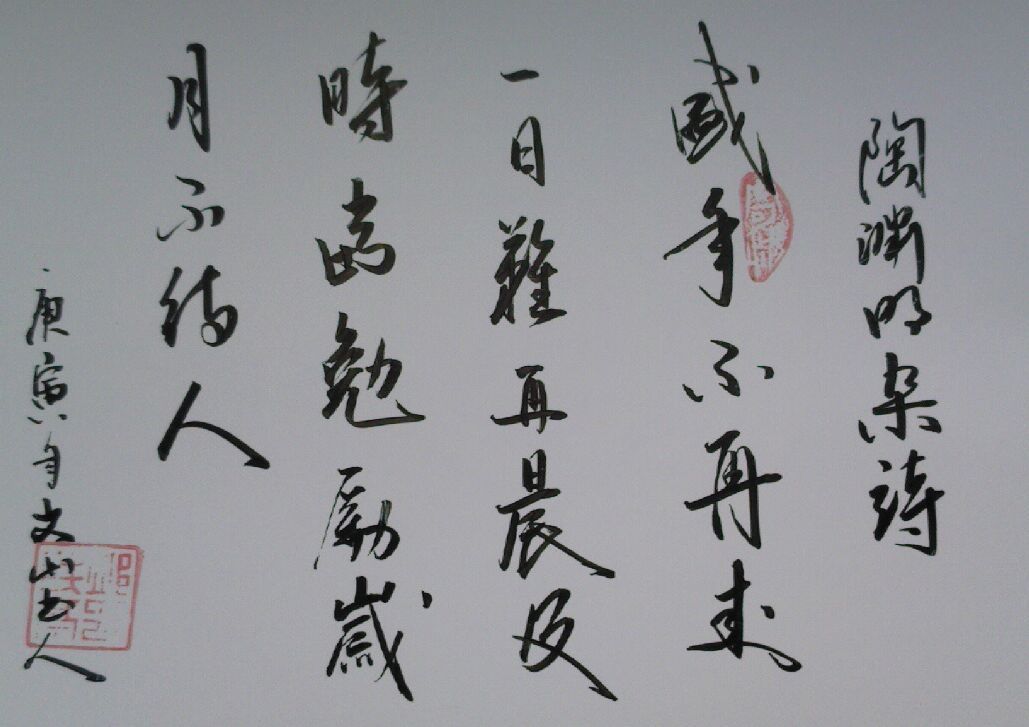 陶渊明杂詩
盛年不再来
一日難再晨及
時當勉勵歲
月不待人
庚寅年文山书人